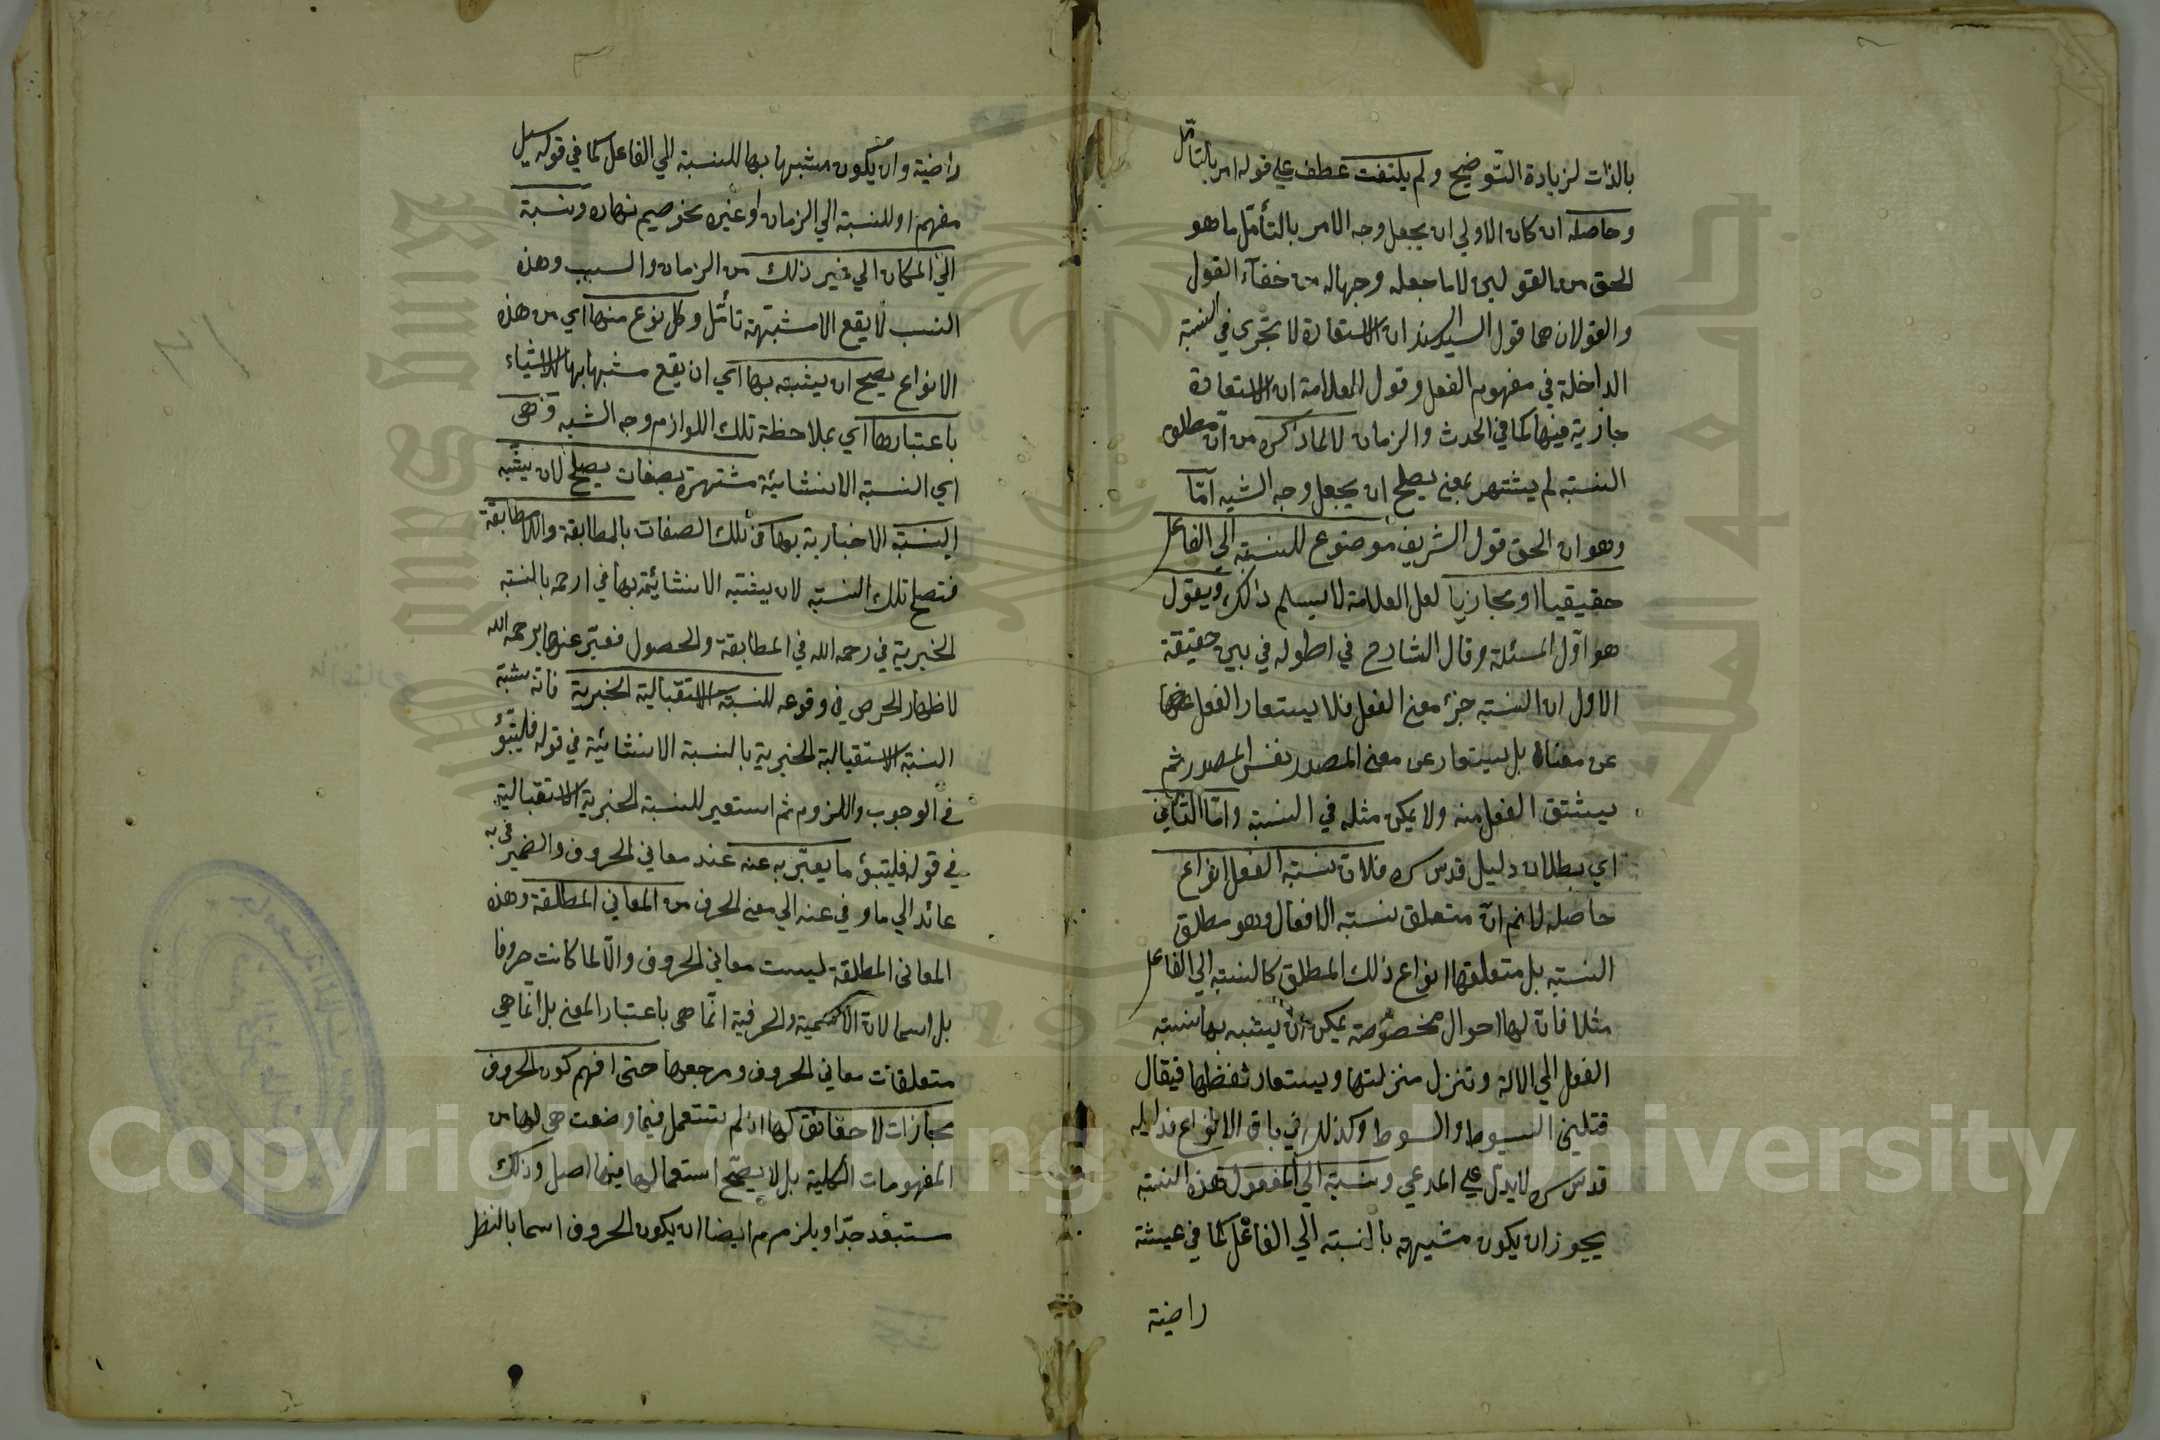 بالذات لزيادة التوضيح ولم يلتفت عطف على قوله امر بالتأمّل
وحاصله ان كان الاولى ان يجعل وجه الامر بالتأمّل ما هو
الحق من القولين لا ما جعله وجها له من خفآء القول
والقولان هما قول السيد السند ان الاستعارة لا تجرى في النسبة
الداخلة في مفهوم الفعل وقول العلامة ان الاستعارة
جارية فيها كما في الحدث والزمان لا لما ذكره من انّ مطلق
النسبة لم يشتهر بمعنى يصلح ان يجعل وجه الشبه امّا
وهو ان الحق قول الشريف موضوع للنسبة الى الفاعل
حقيقيا او مجازيا لعل العلامة لا يسلم ذالك ويقول
هو اوّل المسئلة وقال الشارح في اطوله في حقيقة
الاول ان النسبة جزء معنى الفعل فلا يستعار الفعل
عن معناه بل يستعار عن معنى المصدر نفس المصدر ثم
يشتق الفعل منه ولا يمكن مثله في النسبة وامّا الثانى
اي بطلان دليل قدس سره فلان نسبة الفعل انواع
حاصله لا نم انّ متعلق نسبة الافعال وهو مطلق
النسبة بل متعلقها انواع ذلك المطلق كالنسبة الى الفاعل
مثلا فان لها احوال مخصوصة يمكن ان يشبه بها نسبة
الفعل الى الالة وتنزل منزلتها ويستعار لفظها فيقال
قتلنى السيوط والسوط وكذلك في باقي الانواع فدليله
قدس سره لا يدل على المدعى ونسبة الى المفعول هذه النسبة
يجوز ان يكون مشبهة بالنسبة الى الفاعل كما في عيشة
راضية
راضية وان يكون مشبها بها للنسبة الى الفاعل كما في قوله سيل
مفهم او للنسبة الى الزمان او غيره نحو صيم نهاره ونسبة
الى المكان الى غير ذلك من الزمان والسبب وهذه
النسب لا يقع الا مشبهة تأمّل وكل نوع منها اي من هذه
الانواع يصح ان يشبه بها اي ان يقع مشبها بها الاشياء
باعتبارها اي بملاحظة تلك اللوازم وجه الشبه وهى
اي النسبة الانشائية مشتهرة بصفات يصلح لان يشبه
النسبة الاخبارية بها في تلك الصفات بالمطابقة واللامطابقة
فتصلح تلك النسبة لان يشبه الانشائية بها في ارحمه بالنسبة
الخبرية في رحمه الله في المطابقة والحصول فعبّر عنها برحمه الله
لاظهار الحرص في وقوعه للنسبة الاستقبالية الخبرية فانه شبه
النسبة الاستقبالية الخبرية بالنسبة الانشائية في قوله فليتبوّؤ
في الوجوب واللزوم ثم استعير للنسبة الخبرية الاستقبالية
في قوله فليتبوؤ ما يعتبر به عنه عند معاني الحروف والضمير في به
عائد الى ما وفي عنه الى معنى الحرف من المعاني المطلقة وهذه
المعانى المطلقة ليست معانى الحروف والّا لما كانت حروفا
بل اسما لان الاسمية والحرفية انما هى باعتبار المعنى بل انّما هي
متعلقات معانى الحروف ومرجعها حتى افهم كون الحروف
مجازات لا حقائق لها اذ لم يستعمل فيما وضعت هى لها من
المفهومات الكلية بل لا يصح استعمالها فيها اصلا وذلك
مستبعد جدّا ويلزم م ايضا ان يكون الحروف اسما بالنظر
Copyright © King Saud University
1957